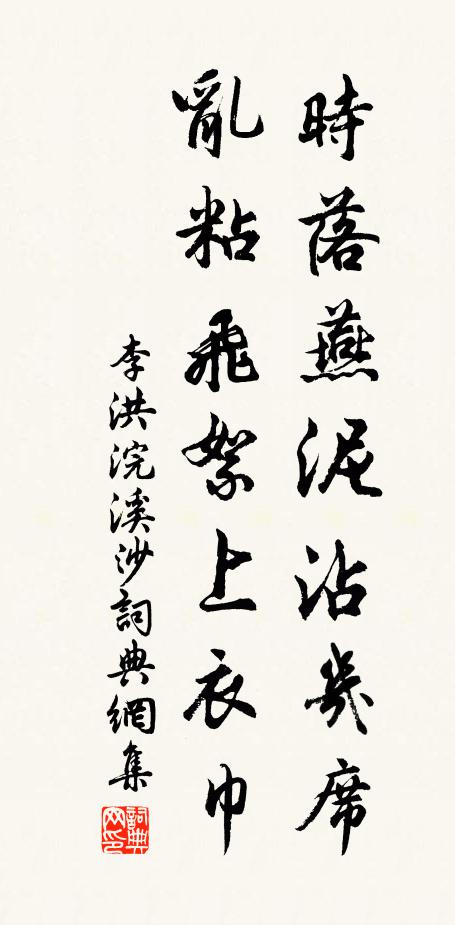 時落燕泥沾几席
亂粘飛絮上衣巾
李洪浣溪沙詞典網集
詞典网印